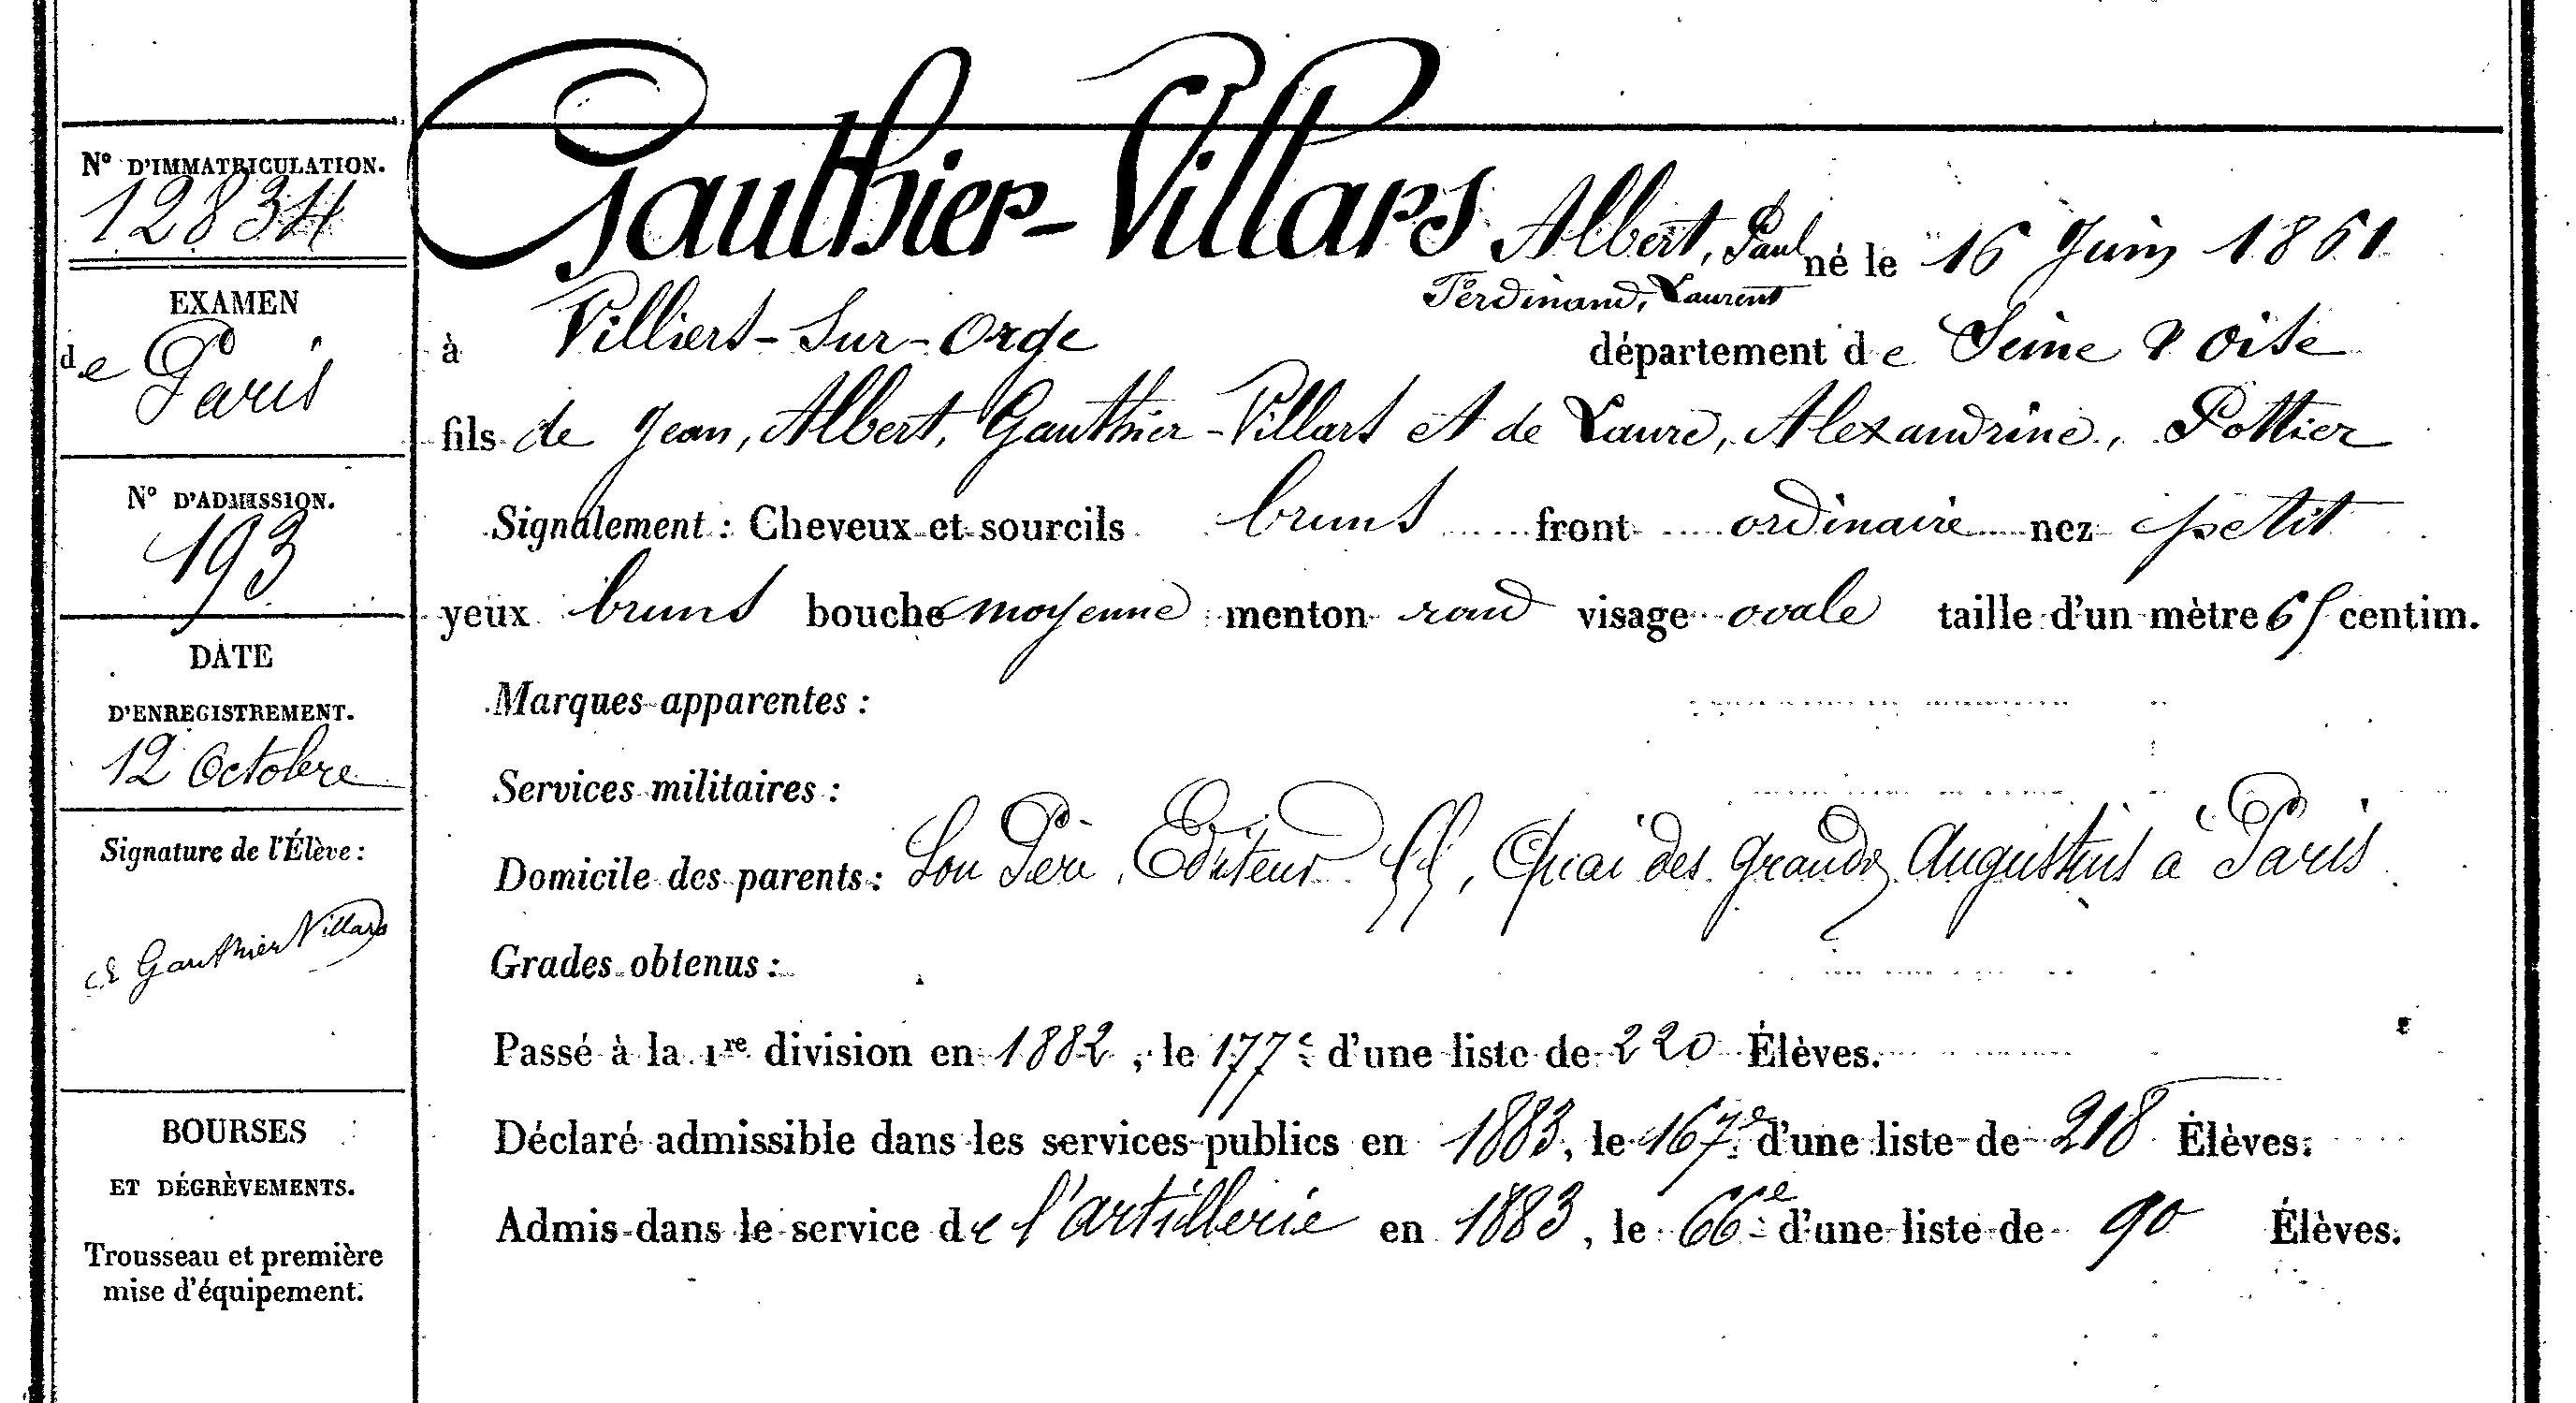 N° D'IMMATRICULATION.
12834
EXAMEN
de Paris
N° D'ADMISSION.
193
DATE
D'ENREGISTREMENT.
12 Octobre
Signature de l'Élève :
Gauthier Villars
BOURSES
ET DÉGRÈVEMENTS.
Trousseau et première
mise d'équipement.
Gauthier-Villars Albert, Paul né le 16 Juin 1861
Ferdinand, Laurent
à Villiers-Sur-Orge département de Seine & Oise
fils de Jean, Albert, Gauthier-Villars et de Laure, Alexandrine, Pottier
Signalement : Cheveux et sourcils bruns front ordinaire nez petit
yeux bruns bouche moyenne menton rond visage ovale taille d'un mètre 65 centim.
Marques apparentes :
Services militaires :
Domicile des parents : Son Père, Editeur 55, Quai des Grands Augustins à Paris
Grades obtenus :
Passé à la 1re division en 1882, le 177e d'une liste de 220 Élèves.
Déclaré admissible dans les services publics en 1883, le 167e d'une liste de 218 Élèves.
Admis dans le service de l'artillerie en 1883, le 66e d'une liste de 90 Élèves.